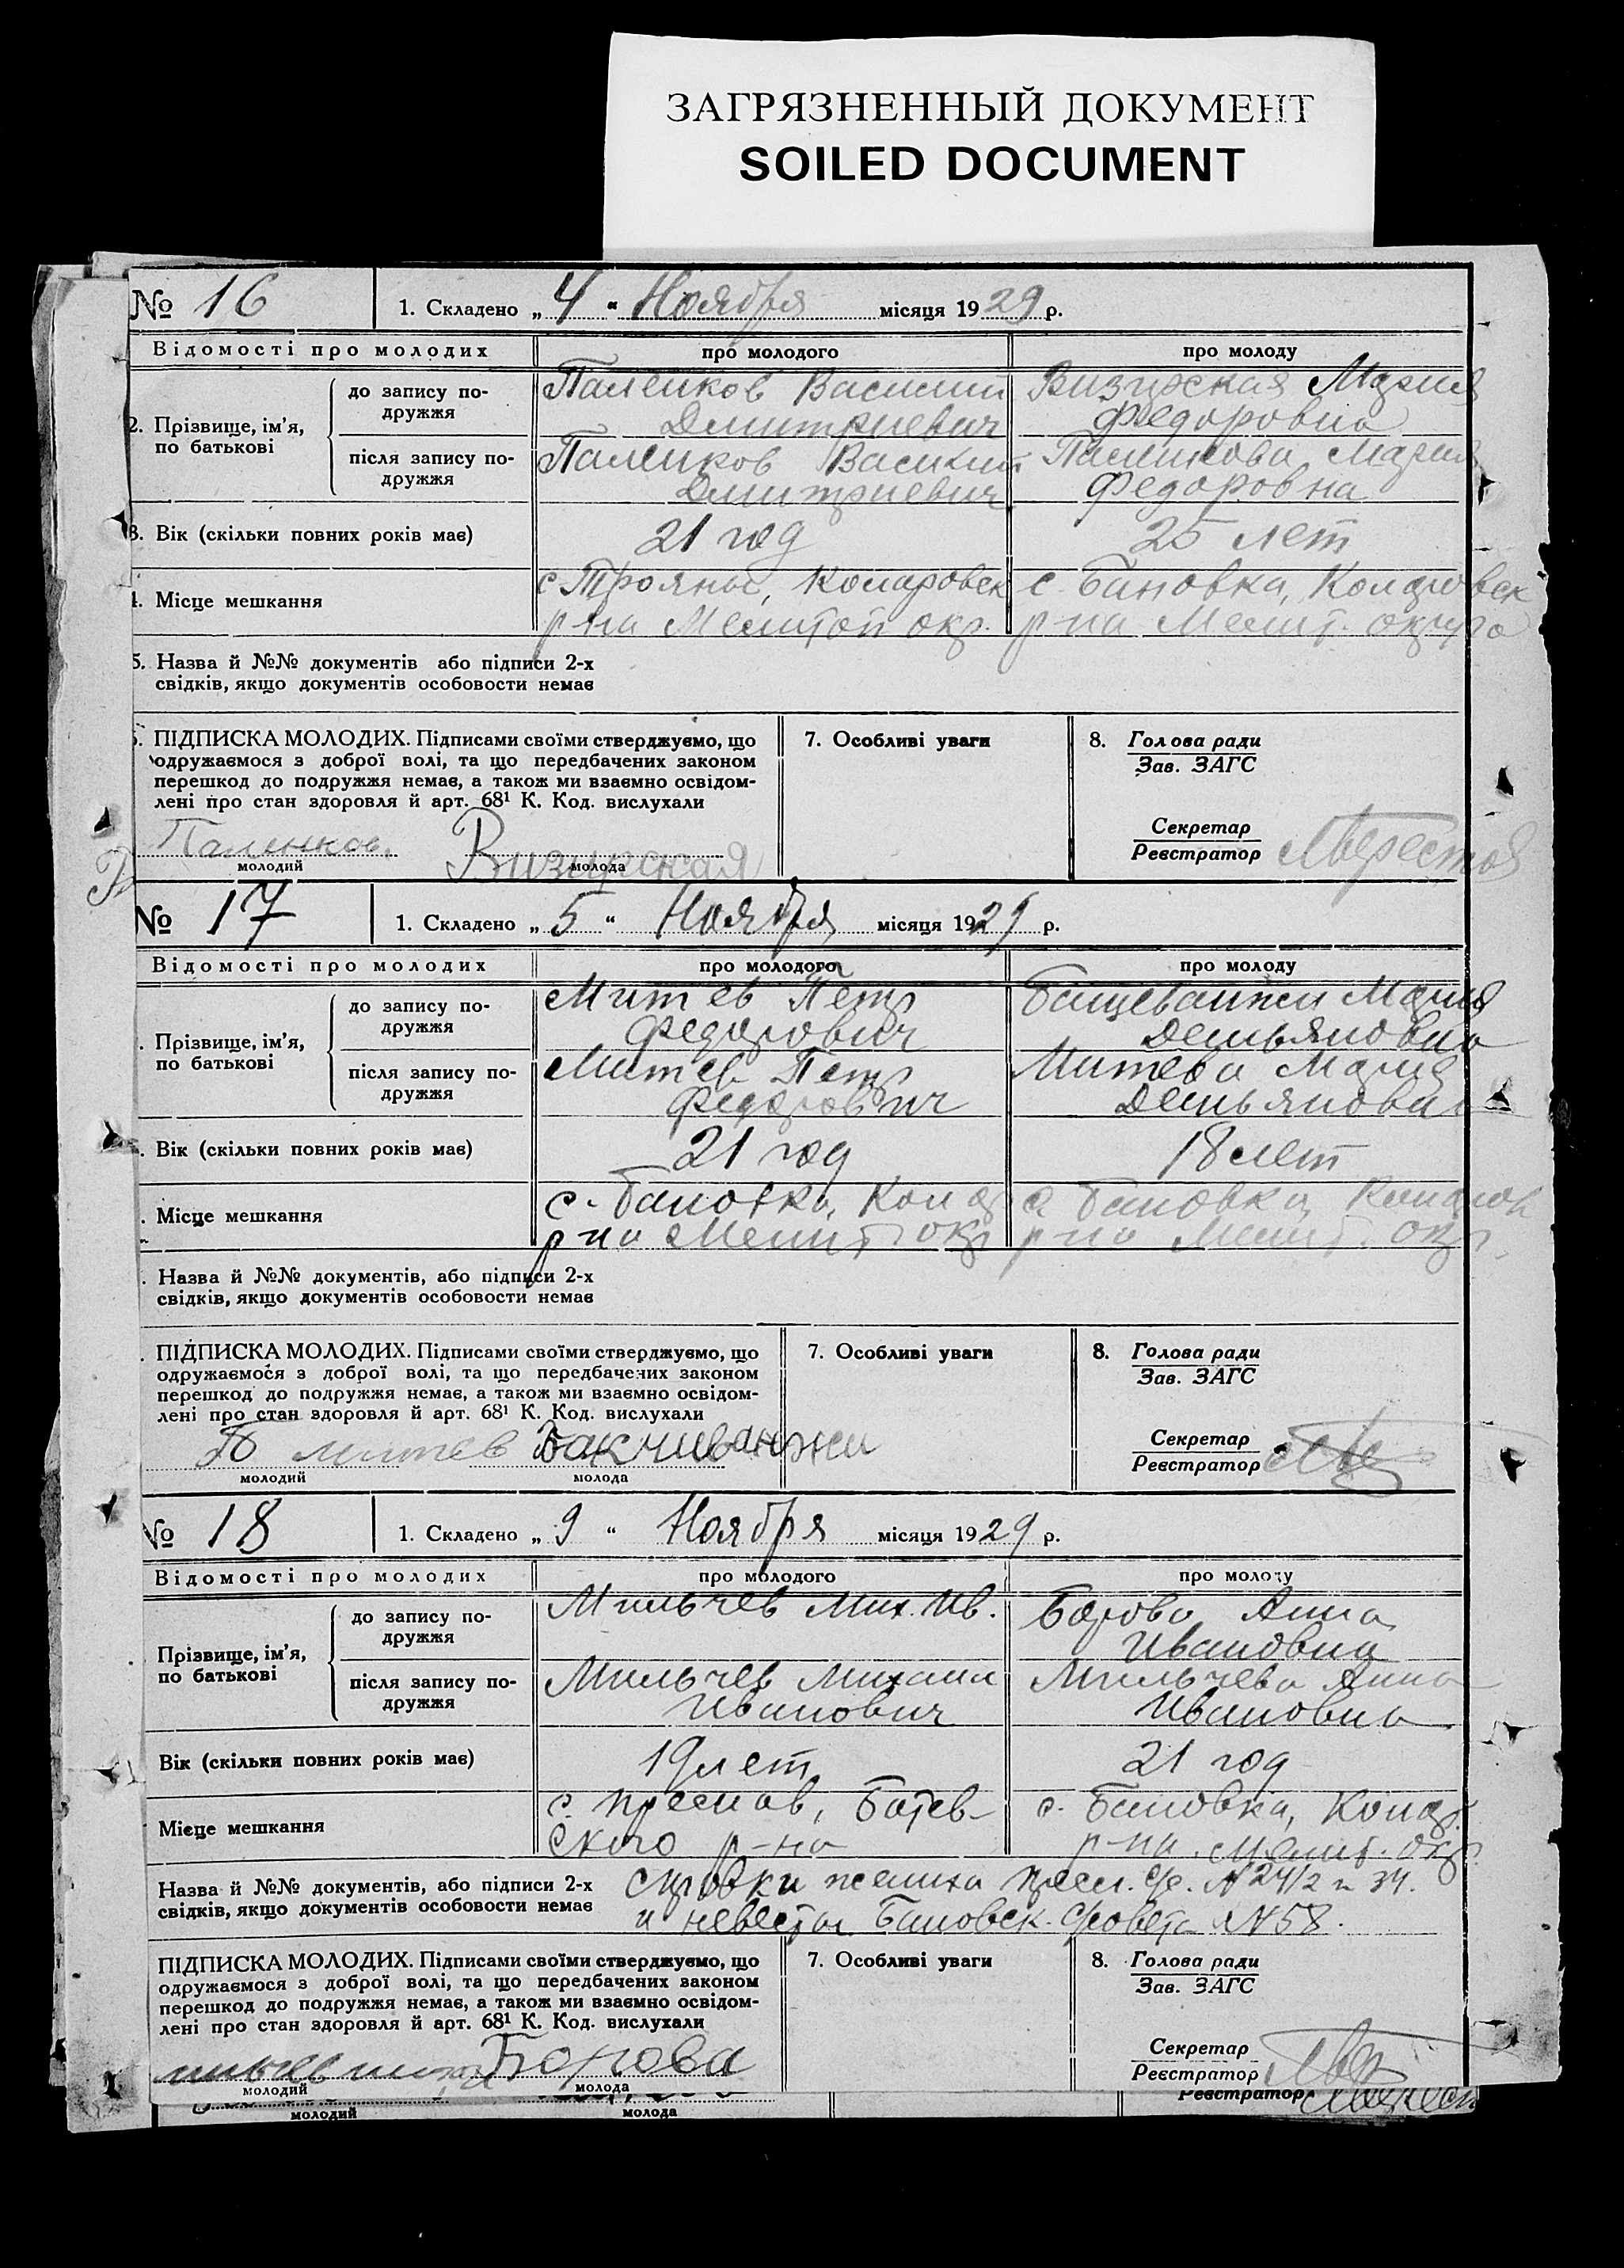 ЗАГРЯЗНЕННЫЙ ДОКУМЕНТ
SOILED DOCUMENT
№ 16 1. Складено „4“ Ноября місяця 1929 р.
Відомості про молодих про молодого про молоду
2. Прізвище, ім’я, по батькові
до запису подружжя
Паленков Василий Визирская Мария
Дмитриевич Федоровна
після запису подружжя
Паленков Василий Паленкова Мария
Дмитриевич Федоровна
3. Вік (скільки повних років має) 21 год 25 лет
4. Місце мешкання
с. Трояны, Коларовск с. Бановка, Коларовск
р-на Мелитоп окр. р-на Мелит. округа
5. Назва й №№ документів або підписи 2-х
свідків, якщо документів особовости немає
ПІДПИСКА МОЛОДИХ. Підписами своїми стверджуємо, що 7. Особливі уваги 8. Голова ради
одружаємося з доброї волі, та що передбачених законом Зав. ЗАГС
перешкод до подружжя немає, а також ми взаємно освідом-
лені про стан здоровля й арт. 68¹ К. Код. вислухали
Секретар
Паленков. Визирская Реєстратор
молодий молода
№ 17 1. Складено „5“ Ноября місяця 1929 р.
Відомості про молодих про молодого про молоду
Прізвище, ім’я, по батькові
до запису подружжя
Митев Петр Бащеванжи Мария
Федорович Демьяновна
після запису подружжя
Митев Петр Митева Мария
Федорович Демьяновна
Вік (скільки повних років має) 21 год 18 лет
Місце мешкання
с. Бановка, Колар с. Бановка, Коларов
р-на Мелит окр р-на Мелит. окр.
Назва й №№ документів, або підписи 2-х
свідків, якщо документів особовости немає
ПІДПИСКА МОЛОДИХ. Підписами своїми стверджуємо, що 7. Особливі уваги 8. Голова ради
одружаємося з доброї волі, та що передбачених законом Зав. ЗАГС
перешкод до подружжя немає, а також ми взаємно освідом-
лені про стан здоровля й арт. 68¹ К. Код. вислухали
Секретар
П митев Бакчиванжи Реєстратор
молодий молода
№ 18 1. Складено „9“ Ноября місяця 1929 р.
Відомості про молодих про молодого про молоду
Прізвище, ім’я, по батькові
до запису подружжя
Мильчев Мих. Ив. Барова Анна
Ивановна
після запису подружжя
Мильчев Михаил Мильчева Анна
Иванович Ивановна
Вік (скільки повних років має) 19 лет 21 год
Місце мешкання
с. Преслав, Ботев- с. Бановка, Колар.
ского р-на р-на. Мелит. окр.
Назва й №№ документів, або підписи 2-х справки жениха Пресл. с/с. № 24/2 и 34.
свідків, якщо документів особовости немає и невесты Бановск. с/совета № 58.
ПІДПИСКА МОЛОДИХ. Підписами своїми стверджуємо, що 7. Особливі уваги 8. Голова ради
одружаємося з доброї волі, та що передбачених законом Зав. ЗАГС
перешкод до подружжя немає, а також ми взаємно освідом-
лені про стан здоровля й арт. 68¹ К. Код. вислухали
Секретар
Борова Реєстратор
молодий молода
Реєстратор
молодий молода